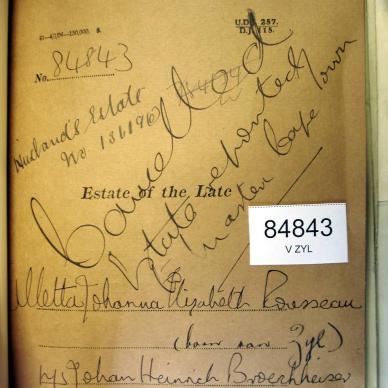 41-4/4/34-130,000. S.
U.D.J. 257.
D.J. 115.
No. 84843
Husband's Estate
No. 136196
Cancelled
Estate reported
Master Cape Town
Estate of the Late
84843
V ZYL
Aletta Johanna Elizabeth Rousseau
(born van Zyl)
p/s Johan Heinrich Broeckheiser